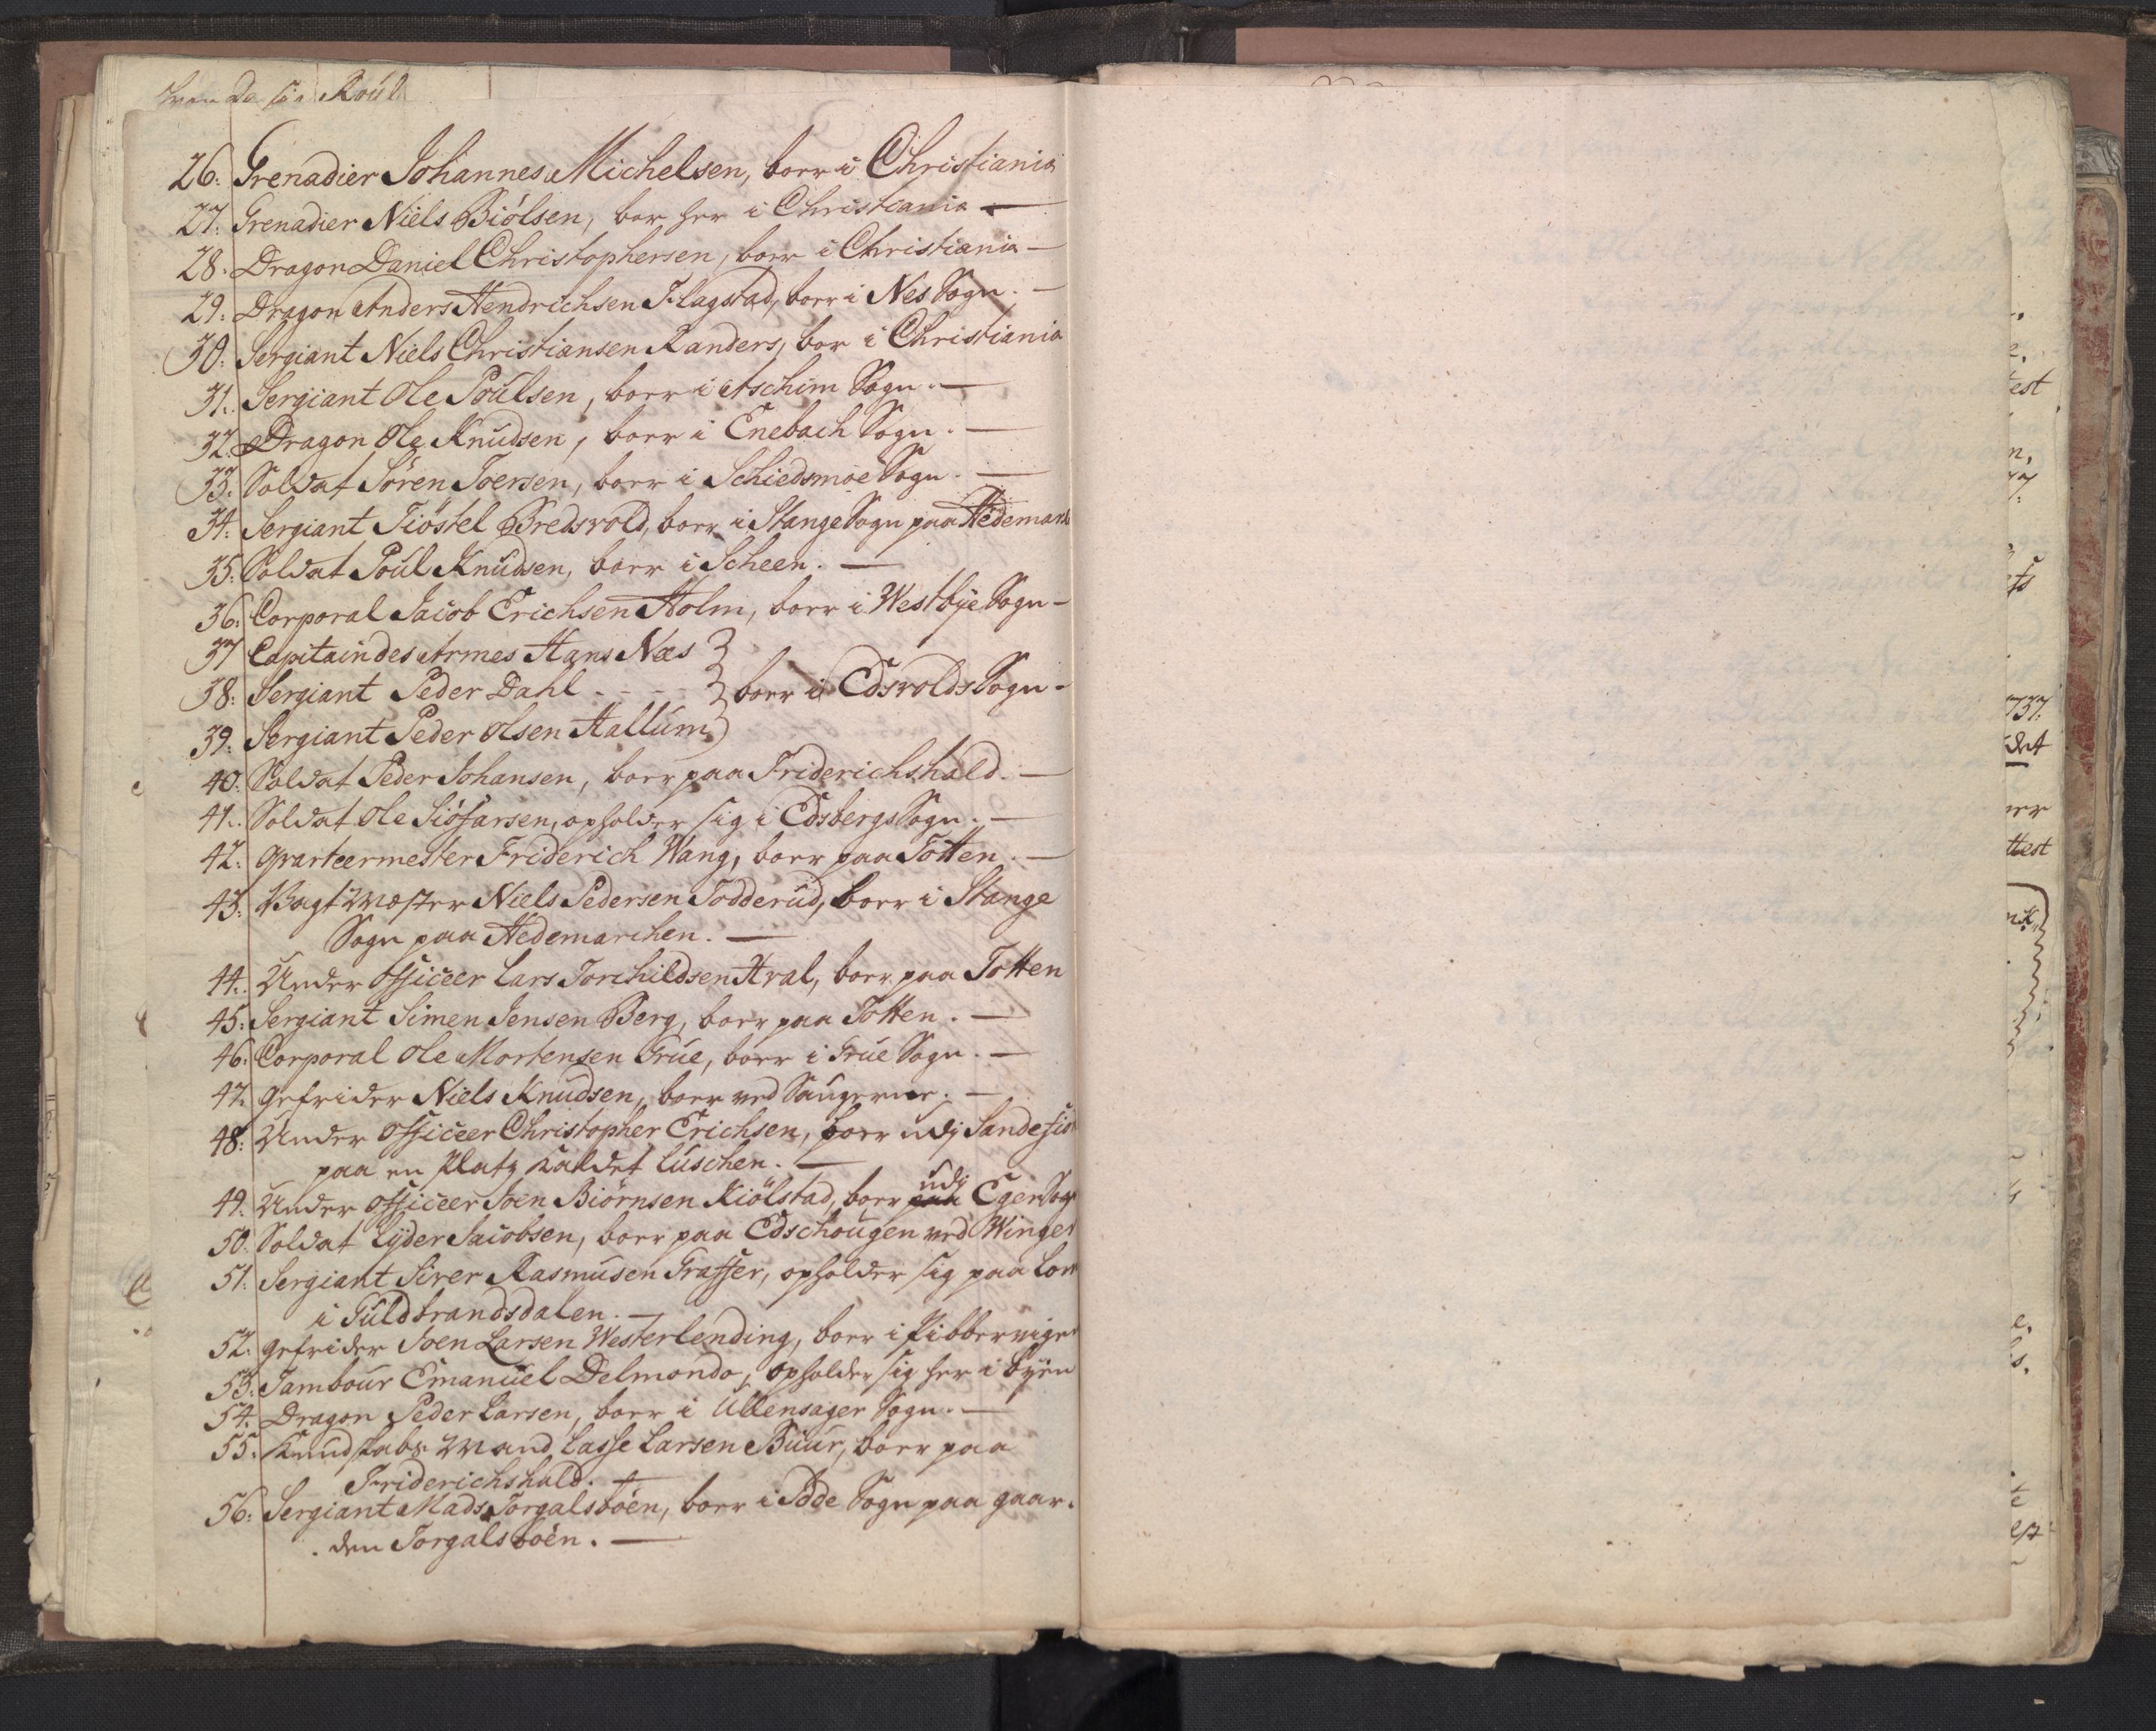 26. Grenadier Johannes Michelsen, boer i Christiania
27. Grenadier Niels Biölsen, boer her i Christiania —
28. Dragon Daniel Christophersen, boer i Christiania —
29. Dragon Anders Hendrichsen Flagstad, boer i Nes Sogn. —
30. Sergiant Niels Christiansen Randers, boer i Christiania
31. Sergiant Ole Poulsen, boer i Aschim Sogn. —
32. Dragon Ole Knudsen, boer i Enebach Sogn. —
33. Soldat Sören Joensen, boer i Schiedsmoe Sogn. —
34. Sergiant Tiöstel Bredsvold, boer i Stange Sogn paa Hedemark
35. Soldat Poul Knudsen, boer i Scheen. —
36. Corporal Jacob Erichsen Holm, boer i Westbye Sogn —
37 Capitain des Armes Hans Næs
38. Sergiant Peder Dahl - - - - boer i Edsvolds Sogn -
39. Sergiant Peder Olsen Hallum
40. Soldat Peder Johansen, boer paa Friderichshald. —
41. Soldat Ole opholder sig i Edsbergs Sogn. —
42. Qvarteermester Friderich Wang, boer paa Totten. —
43. Vagtmester Niels Pedersen Todderud, boer i Stange
Sogn paa Hedemarchen. —
44. Under officeer Lars Torchildsen Hval, boer paa Totten
45. Sergiant Simen Jensen Berg, boer paa Totten. —
46. Corporal Ole Mortensen Grue, boer i Grue Sogn. —
47. Gefrider Niels Knudsen, boer ved Saugerne. —
48. Under officeer Christopher Erichsen, boer udj
paa en Platz kaldet Luschen. —
49. Under officeer Joen Biörnsen Kiölstad, boer udj Eger Sogn
50. Soldat Lyder Jacobsen, boer paa Edschougen ved Winger
51. Sergiant Siver Rasmusen Graffer, opholder sig paa Lom
i Guldbrandsdalen. —
52. Gefrider Joen Larsen Westerlending, boer i Pibbervigen
53. Tambour Emanuel Delmondo, opholder sig her i byen
54. Dragon Peder Larsen, boer i Ullensager Sogn. —
55. Kundskabs Mand Lasse Larsen Buur, boer paa
Friderichshald. —
56. Sergiant Mads Torgalsböen, boer i Idde Sogn paa gaar-
den Torgalsböen. —